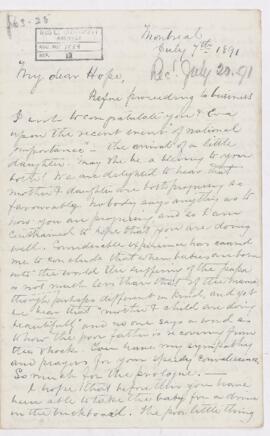 Montreal
July 7th 1891
Rec'd July 20. 91
My dear Hope,
Before proceeding to business
I want to congratulate you & Eva
upon the recent event of "national
importance" — the arrival of a little
daughter. May she be a blessing to you
both! We are delighted to hear that
mother & daughter are both progressing so
favourably. Nobody says anything as to
how you are progressing and so I am
constrained to hope that you are doing
well. Considerable experience has caused
me to conclude that when babies are born
into the world the suffering of the papa
is not much less than that of the mama
though perhaps different in kind, and yet
we hear that "mother & child are doing
beautifully" and no one says a word as
to how the poor father is recovering from
the shock. You have my sympathies
and prayers for your speedy convalescence.
So much for the prologue. —
I hope that before this you have
been able to take the baby for a drive
in the buckboard. The poor little thing